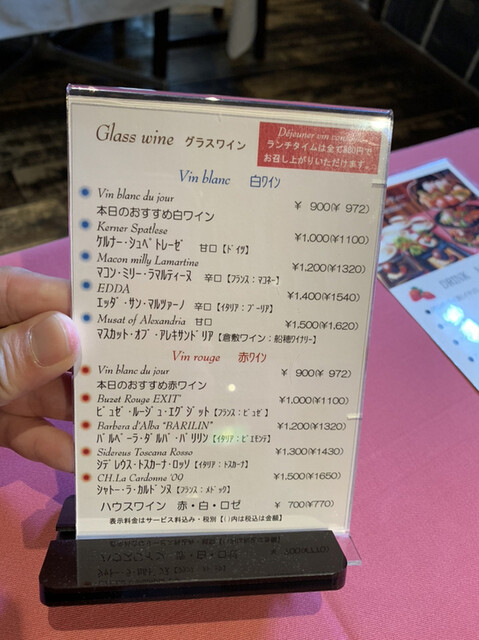 Glass wine グラスワイン
Déjeuner vin
ランチタイムは全て800円で
お召し上がりいただけます。
Vin blanc 白ワイン
Vin blanc du jour
本日のおすすめ白ワイン ¥ 900(¥ 972)
Kerner Spatlese ¥1,000(¥1100)
ケルナー・シュペトレーゼ 甘口【ドイツ】
Macon milly Lamartine ¥1,200(¥1320)
マコン・ミリー・ラマルティーヌ 辛口【フランス:マコネー】
EDDA ¥1,400(¥1540)
エッダ・サン・マルツァーノ 辛口【イタリア:プーリア】
Musat of Alexandria 甘口 ¥1,500(¥1,620)
マスカット・オブ・アレキサンドリア【倉敷ワイン:船穂ワイナリー】
Vin rouge 赤ワイン
Vin blanc du jour ¥ 900(¥ 972)
本日のおすすめ赤ワイン
Buzet Rouge EXIT' ¥1,000(¥1100)
ビュゼ・ルージュ・エグジット【フランス:ビュゼ】
Barbera d'Alba "BARILIN" ¥1,200(¥1320)
バルベーラ・ダルバ・バリリン【イタリア:ピエモンテ】
Sidereus Toscana Rosso ¥1,300(¥1430)
シデレウス・トスカーナ・ロッソ【イタリア:トスカーナ】
CH.La Cardonne '09 ¥1,500(¥1650)
シャトー・ラ・カルドンヌ【フランス:メドック】
ハウスワイン 赤・白・ロゼ ¥ 700(¥770)
表示料金はサービス料込み・税別【( )内は税込は金額】
DRINK